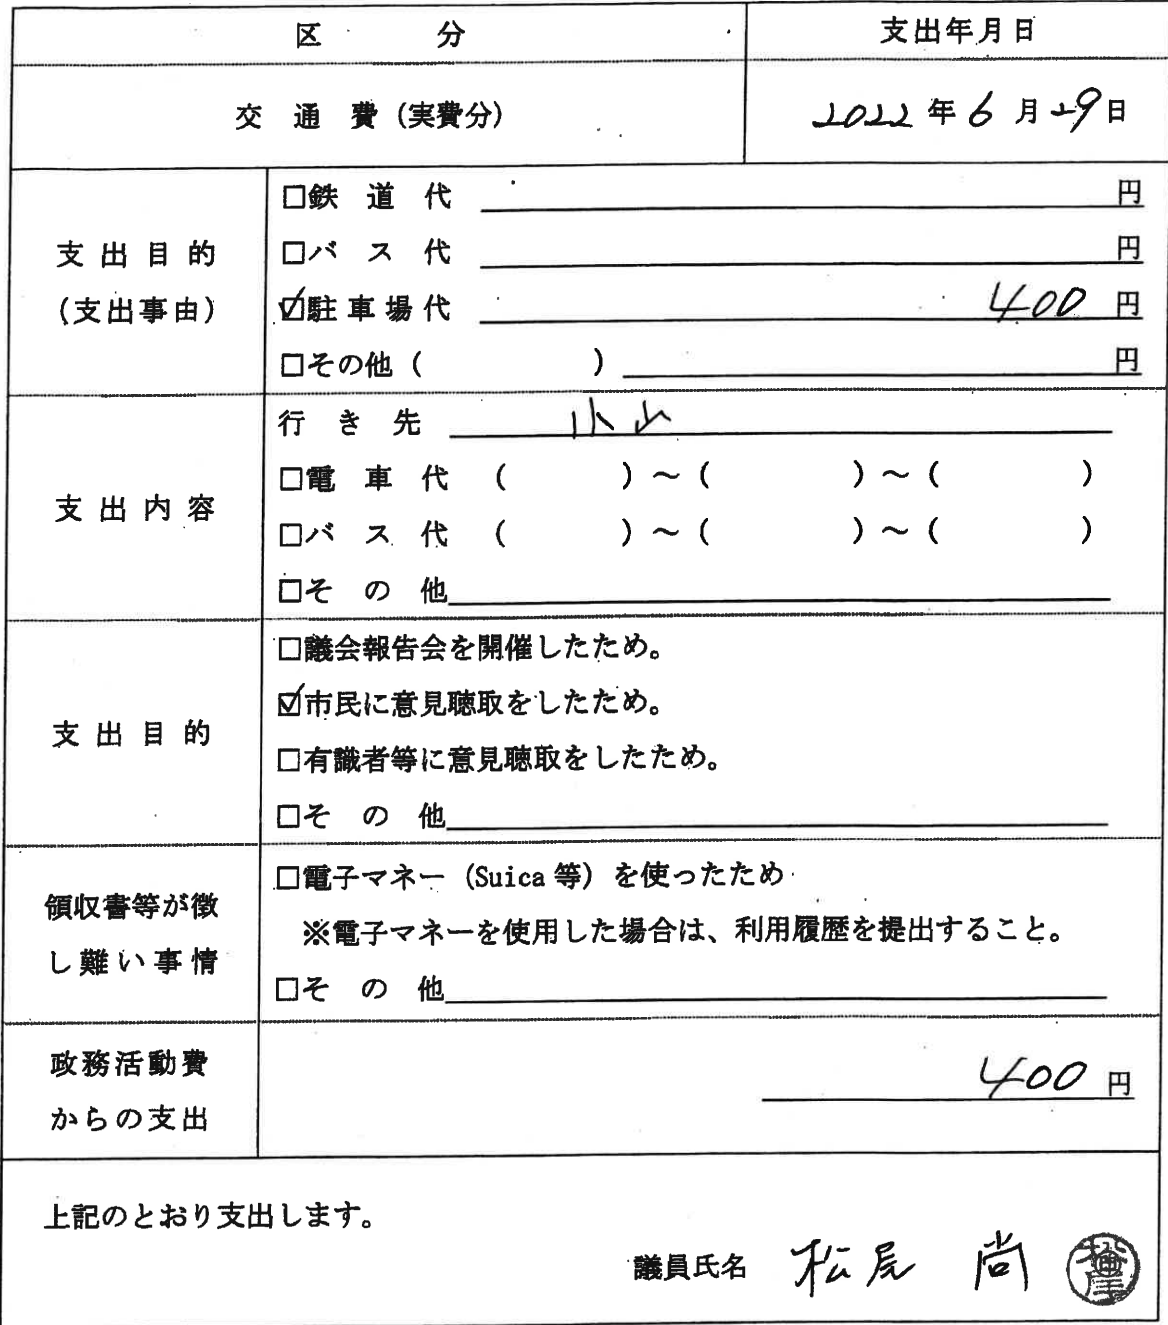 区 分 支出年月日
交 通 費 (実費分) 2022 年 6 月 29 日
支出目的
(支出事由)
□鉄 道 代 円
□バ ス 代 円
☑駐車場代 400 円
□その他 ( ) 円
支出内容
行 き 先 小山
□電 車 代 ( ) ～ ( ) ～ ( )
□バ ス 代 ( ) ～ ( ) ～ ( )
□そ の 他
支出目的
□議会報告会を開催したため。
☑市民に意見聴取をしたため。
□有識者等に意見聴取をしたため。
□そ の 他
領収書等が徴
し難い事情
□電子マネー (Suica 等) を使ったため
※電子マネーを使用した場合は、利用履歴を提出すること。
□そ の 他
政務活動費
からの支出
400 円
上記のとおり支出します。
議員氏名 松尾 尚